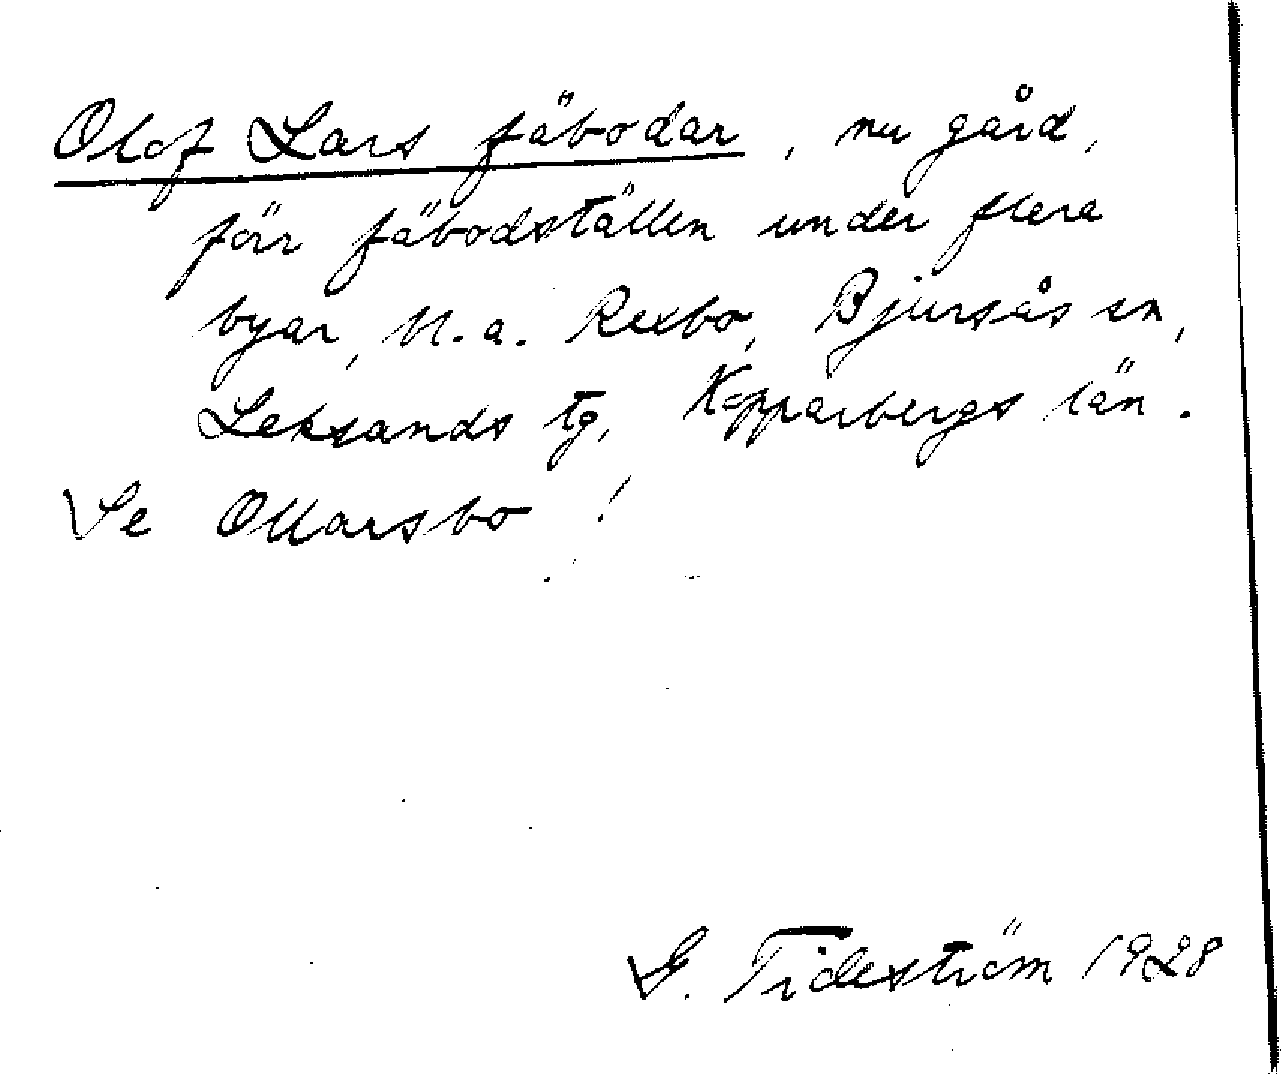 Olof Lars fäbodar, nu gård,
förr fäbodställen under flera
byar, bl.a. Rexbo, Bjursås sn,
Leksands tg, Kopparbergs län.
Se Ollarsbo!
G. Tideström 1928